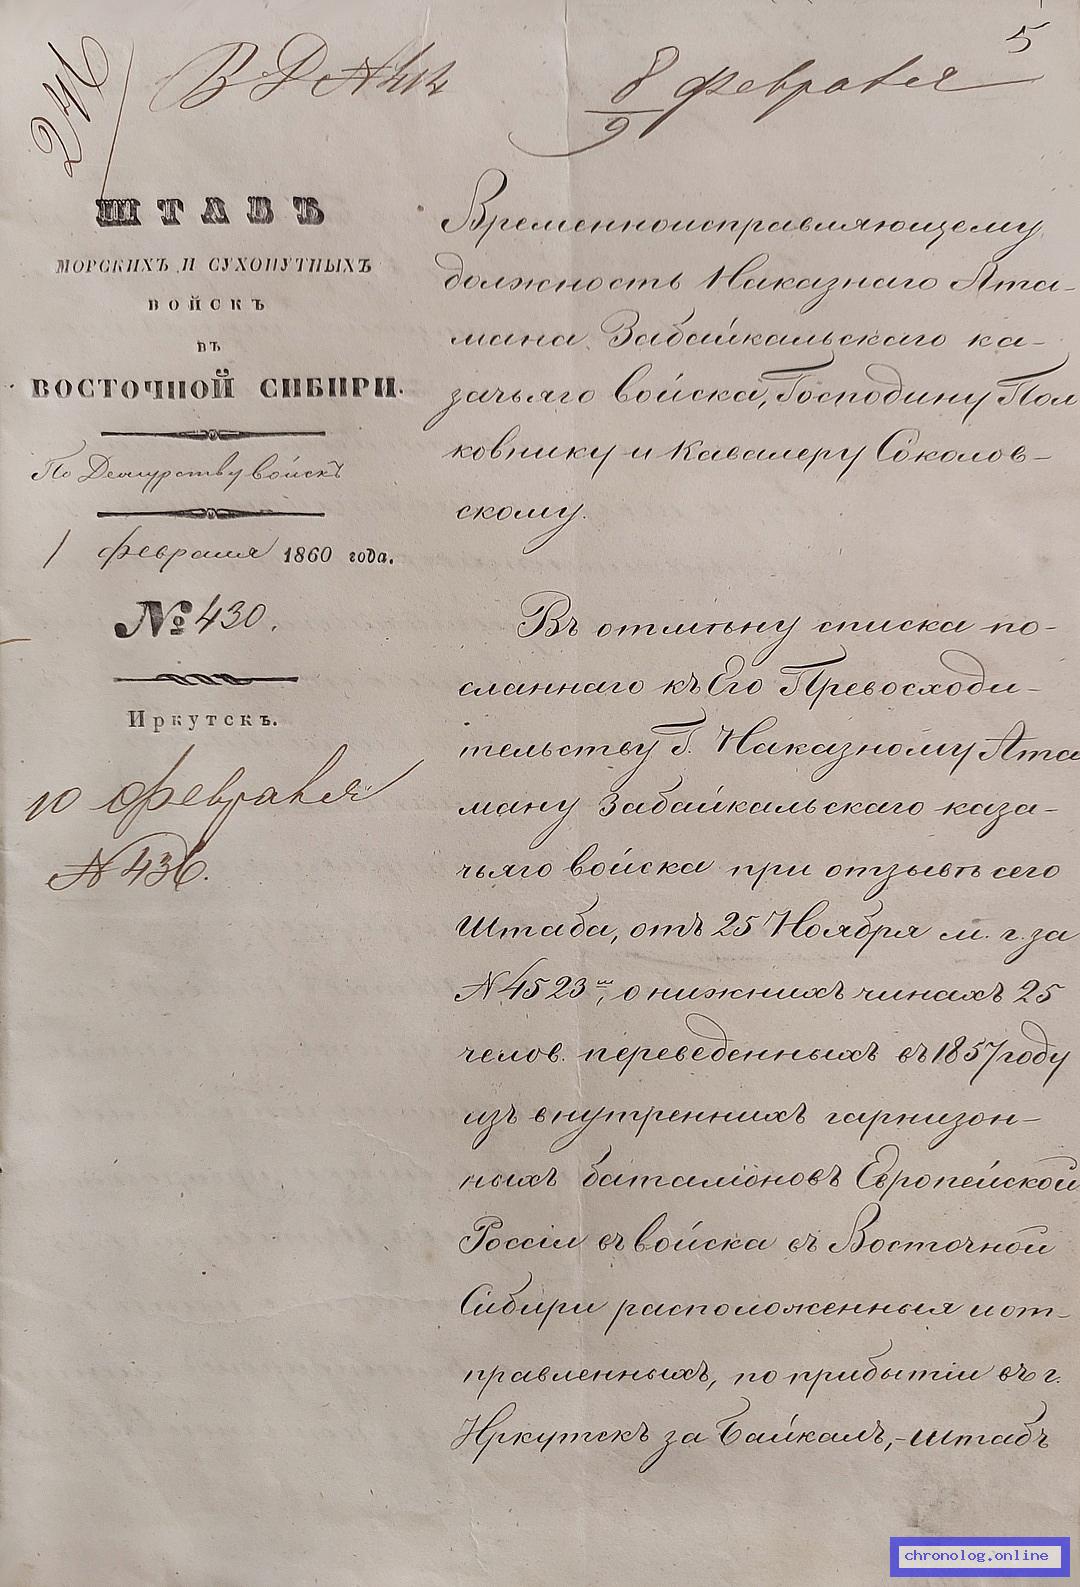 5
246
В Д № 414
8/9 февраля
ШТАБЪ
МОРСКИХЪ И СУХОПУТНЫХЪ
ВОЙСКЪ
ВЪ
ВОСТОЧНОЙ СИБИРИ.
По Дежурству войскъ
1 февраля 1860 года.
№ 430.
Иркутскъ.
10 февраля
№ 436.
Временноисправляющему
должность Наказнаго Ата-
мана Забайкальскаго ка-
зачьяго войска, Господину Пол
ковнику и Кавалеру Соколов-
скому.
Въ отмѣну списка по-
сланнаго къ Его Превосходи-
тельству Г. Наказному Ата
ману Забайкальскаго каза-
чьяго войска при отзывѣ сего
Штаба, отъ 25 Ноября м. г. за
№ 4523, о нижнихъ чинахъ 25
челов. переведенныхъ въ 1857 году
изъ внутреннихъ гарнизон-
ныхъ баталіоновъ Европейской
Россіи въ войска въ Восточной
Сибири расположенныя и от-
правленныхъ, по прибытіи въ г.
Иркутскъ за Байкалъ,-штабъ
chronolog.online